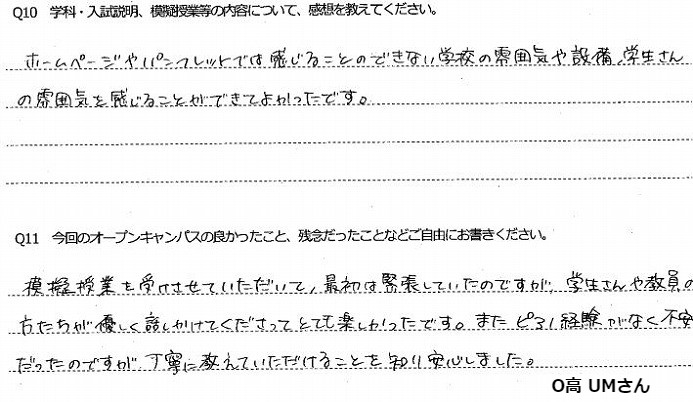 Q10 学科・入試説明、模擬授業等の内容について、感想を教えてください。
ホームページやパンフレットでは感じることのできない学校の雰囲気や設備、学生さん
の雰囲気を感じることができてよかったです。
Q11 今回のオープンキャンパスの良かったこと、残念だったことなどご自由にお書きください。
模擬授業を受けさせていただいて、最初は緊張していたのですが、学生さんや教員の
方たちが優しく話しかけてくださってとても楽しかったです。また ピアノ経験がなく不安
だったのですが丁寧に教えていただけることを知り安心しました。
O高 UMさん